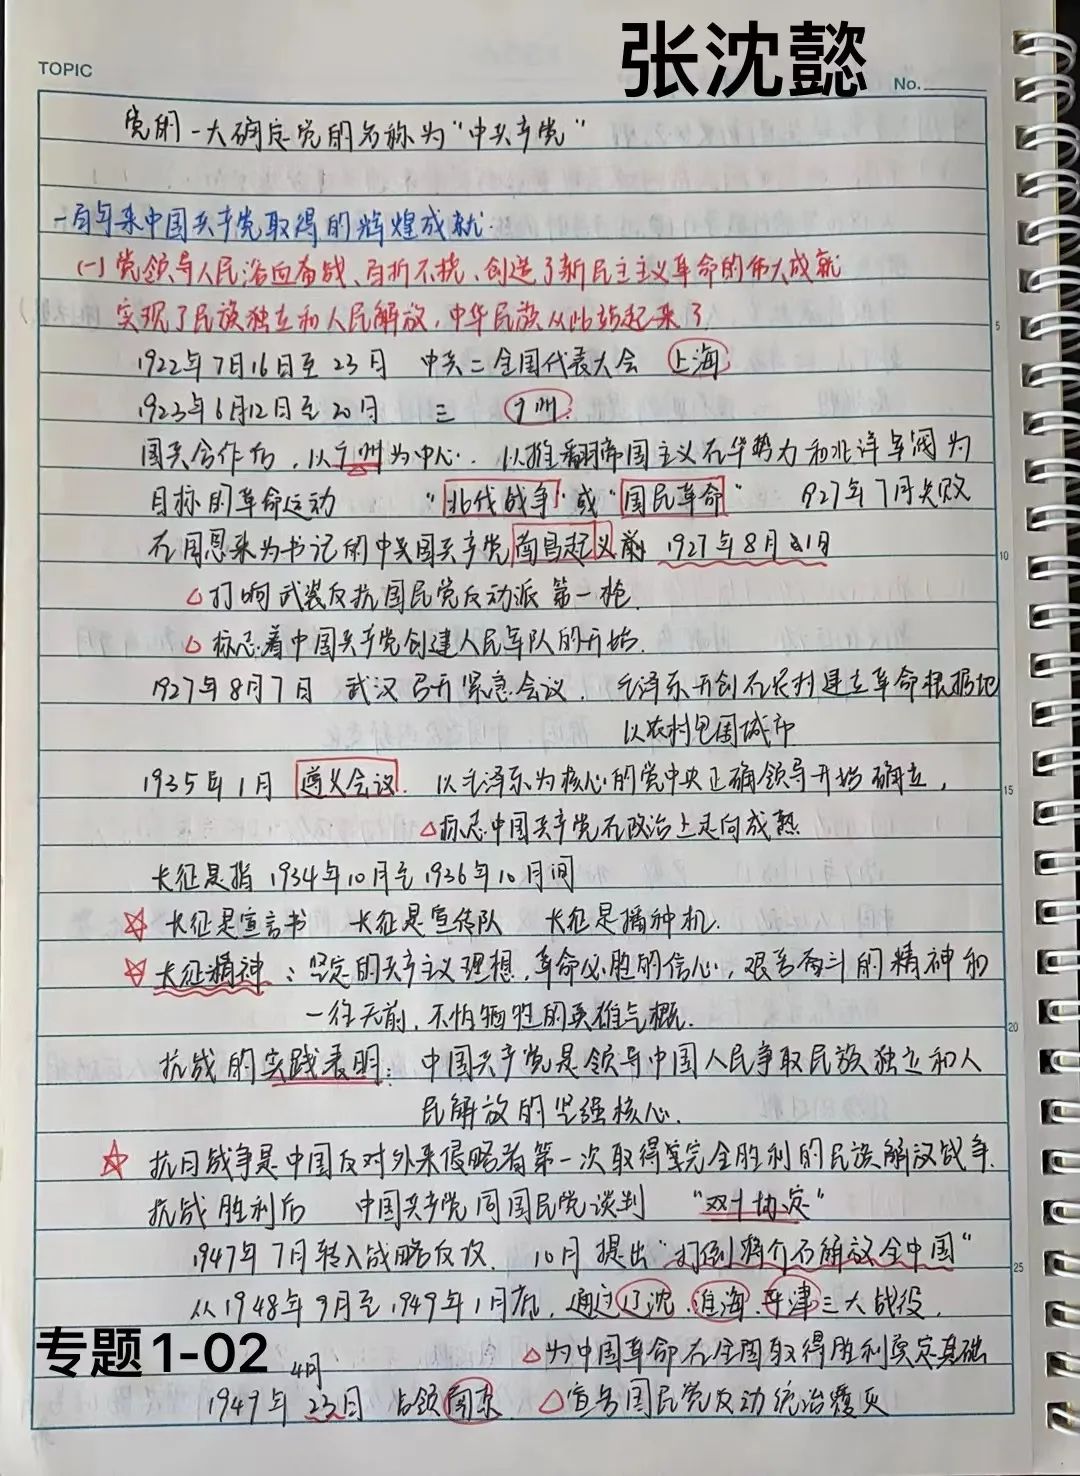 张沈懿
TOPIC
No.
党的一大确定党的名称为“中共产党”
一百年来中国共产党取得的辉煌成就.
(一)党领导人民浴血奋战、百折不挠、创造了新民主主义革命的伟大成就
实现了民族独立和人民解放,中华民族从此站起来了
1922年7月16日至23日 中共二全国代表大会 上海
1923年6月12日至20日 三 广州.
国共合作后,以广州为中心.以推翻帝国主义在华势力和北洋军阀为
目标的革命运动 “北伐战争”或“国民革命” 927年7月失败
5
在周恩来为书记的中共国共产党南昌起义前 1927年8月1日
10
△打响武装反抗国民党反动派第一枪.
△标志着中国共产党创建人民军队的开始.
1927年8月7日 武汉召开紧急会议.毛泽东开创在农村建立革命根据地
以农村包围城市
1935年1月 遵义会议. 以毛泽东为核心的党中央正确领导开始确立,
15
△标志中国共产党在政治上走向成熟
长征是指1934年10月至1936年10月间
☆ 长征是宣言书 长征是宣传队 长征是播种机.
☆ 长征精神:坚定的共产主义理想,革命必胜的信心,艰苦奋斗的精神和
一往无前,不怕牺牲的英雄气概.
20
抗战的实践表明:中国共产党是领导中国人民争取民族独立和人
民解放的坚强核心.
☆ 抗日战争是中国反对外来侵略者第一次取得完全胜利的民族解放战争.
抗战胜利后 中国共产党同国民党谈判 “双十协定”
1947年7月转入战略反攻. 10月提出“打倒蒋介石解放全中国”
25
从1948年9月至1949年1月底,通过辽沈.淮海.平津三大战役,
专题1-02
△为中国革命在全国取得胜利奠定基础
1949年4月23日 占领南京. △宣告国民党反动统治覆灭